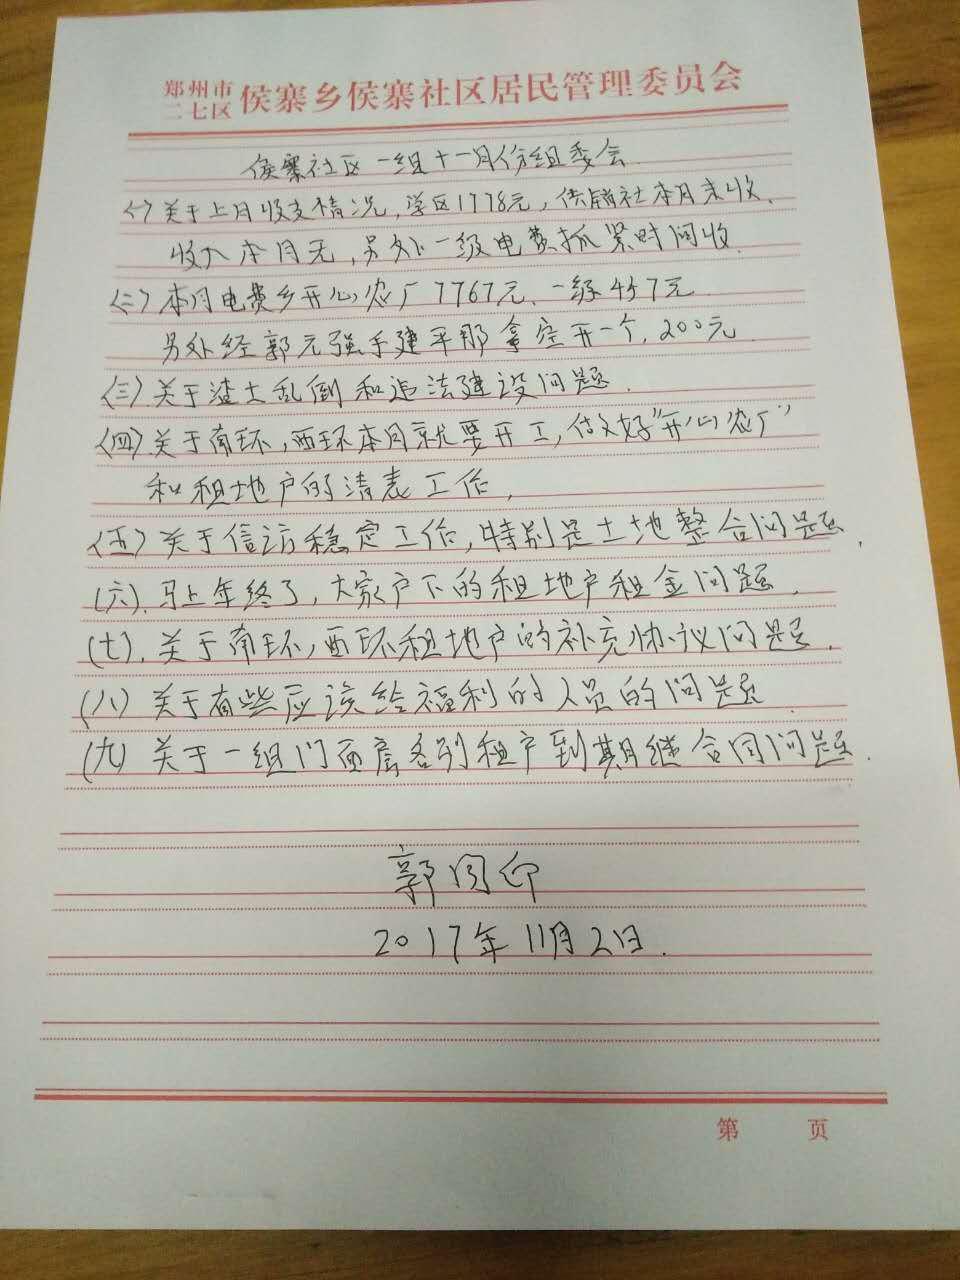 郑州市
二七区 侯寨乡侯寨社区居民管理委员会
侯寨社区一组十一月份组委会
(一) 关于上月收支情况,学区1778元,供销社本月未收、
收入本月无,另外一级电费抓紧时间收
(二) 本月电费乡开心农厂7767元、一级457元
另外经郭元强手建平那拿空开一个,200元
(三) 关于渣土乱倒和违法建设问题.
(四) 关于南环,西环本月就要开工,做好"开心农厂"
和租地户的清表工作,
(五) 关于信访稳定工作,特别是土地整合问题.
(六). 马上年终了,大家户下的租地户租金问题.
(七). 关于南环,西环租地户的补充协议问题.
(八) 关于有些应该给福利的人员的问题.
(九) 关于一组门面房各别租户到期继合同问题.
郭
2017年11月2日.
第 页